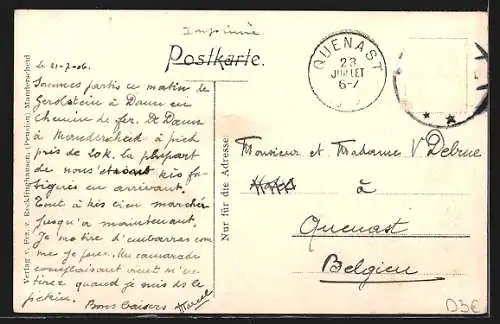 Imprimé
Postkarte.
QUENAST
23
JUILLET
6-7
le 21-7-06.
Sommes partis ce matin de
Gerolstein à Daun en
chemin de fer. De Daun
à Manderscheid à pied
près de 20k. la plupart
de nous étaient très fa-
tigués en arrivant.
Tout à très bien marché
jusqu'a maintenant.
Je me tire d'embarras com
me je peux. Un camarade
complaisant
tirez quand je suis ds le
pétrin. Bons baisers Marcel
Verlag v. Frz. v. Recklinghausen, (Pension) Manderscheid
Nur für die Adresse
Monsieur et Madame V Debrue
à
Quenast
Belgien
D3E